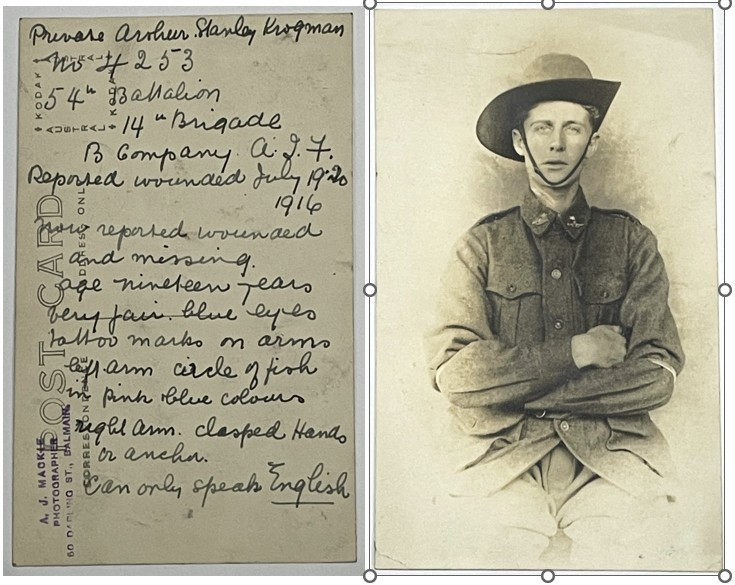 Private Arthur Stanley Krogman
No 4253
54th Battalion
14th Brigade
B Company. A.I.F.
Reported wounded July 19-20
1916
now reported wounded
and missing.
age nineteen years
very fair. blue eyes
tattoo marks on arms
left arm circle of fish
in pink blue colours
right arm. clasped Hands
or anchor.
Can only speak English
POST CARD
CORRESPONDENCE
ADDRESS ONLY
KODAK
AUSTRAL
A. J. MACKIE
PHOTOGRAPHER
60 DARLING ST., BALMAIN